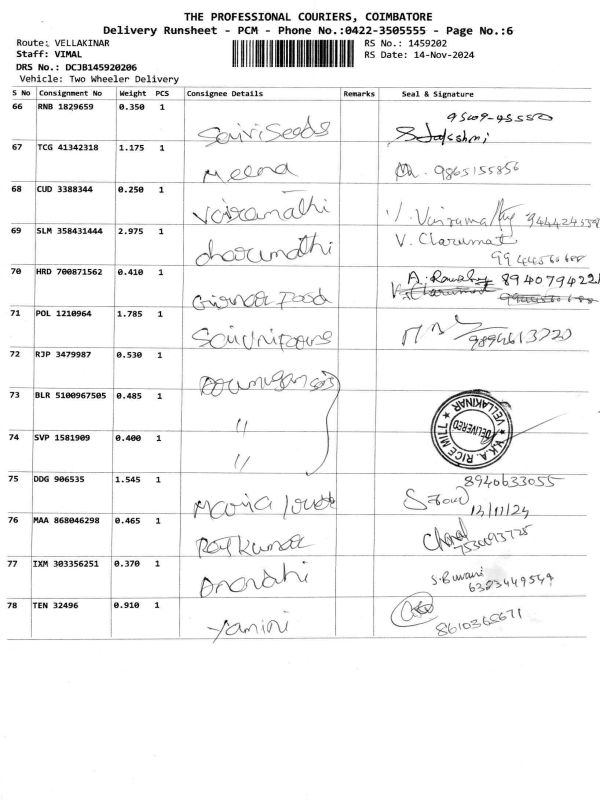 THE PROFESSIONAL COURIERS, COIMBATORE
Delivery Runsheet - PCM - Phone No.:0422-3505555 - Page No.:6
Route: VELLAKINAR RS No.: 1459202
Staff: VIMAL RS Date: 14-Nov-2024
DRS No.: DCJB145920206
Vehicle: Two Wheeler Delivery
S No Consignment No Weight PCS Consignee Details Remarks Seal & Signature
66 RNB 1829659 0.350 1
67 TCG 41342318 1.175 1 Meena 9865155856
68 CUD 3388344 0.250 1 Vairamathi
69 SLM 358431444 2.975 1 charumathi V. Clarumat
70 HRD 700871562 0.410 1 8940794221
71 POL 1210964 1.785 1 9894613720
72 RJP 3479987 0.530 1
73 BLR 5100967505 0.485 1 "
74 SVP 1581909 0.400 1 "
V.K.A. RICE MILL VELLAKINAR DELIVERED
75 DDG 906535 1.545 1 Maria 8940633055
14/11/24
76 MAA 868046298 0.465 1 Rajkumar
77 IXM 303356251 0.370 1 Anandhi 6383449549
78 TEN 32496 0.910 1 Yamini